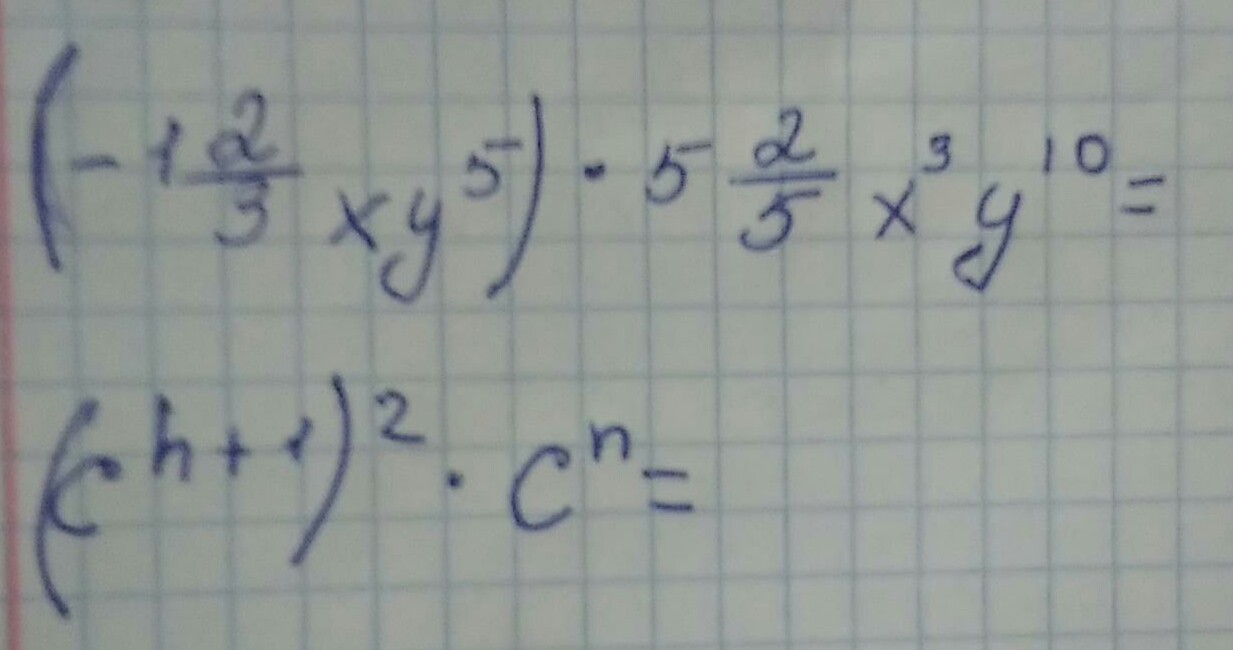 (-1 2/3 xy^5) · 5 2/5 x^3 y^10 =
(c^n+1)^2 · c^n =